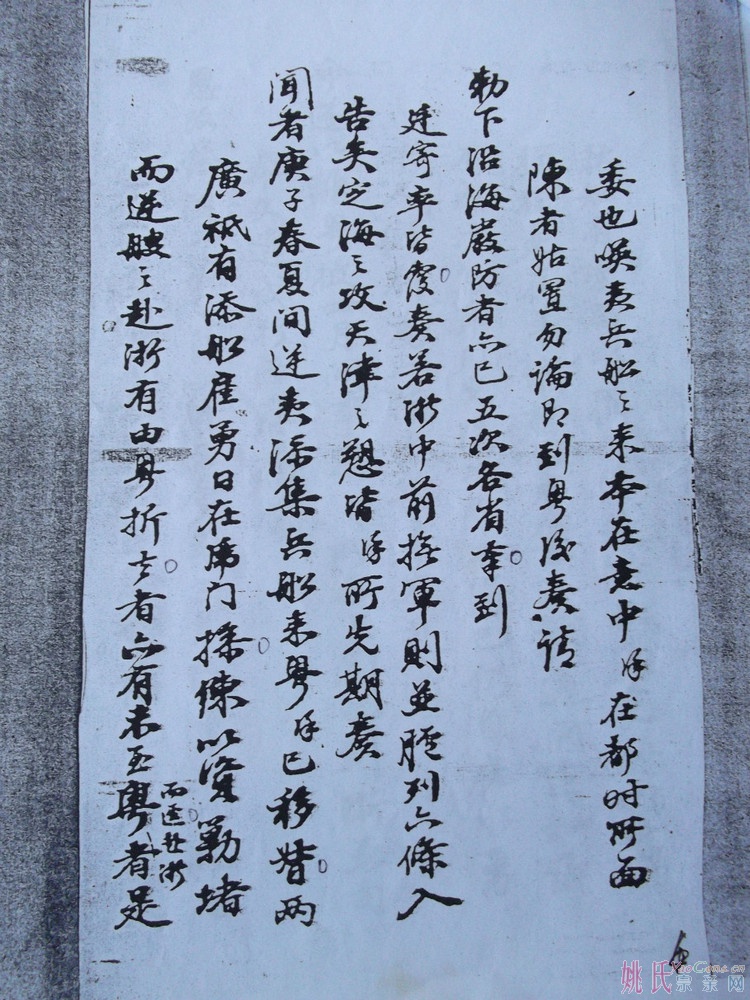 委也嘆夷兵船之来本在意中徐在都时所面
陳者姑置勿論即到粤後奏請
勅下沿海嚴防者亦已五次各省奉到
廷寄率皆覆奏若浙中前撫軍則並臚列六條入
告矣定海之攻天津之愬皆徐所先期奏
聞者庚子春夏间逆夷添集兵船来粤徐已移督两
廣祗有添船雇勇日在虎门操练以資剿堵
而逆艘之赴浙有由粤折去者亦有未至粤
而逕赴浙
者是
姚氏宗亲网
YaoGens.cn